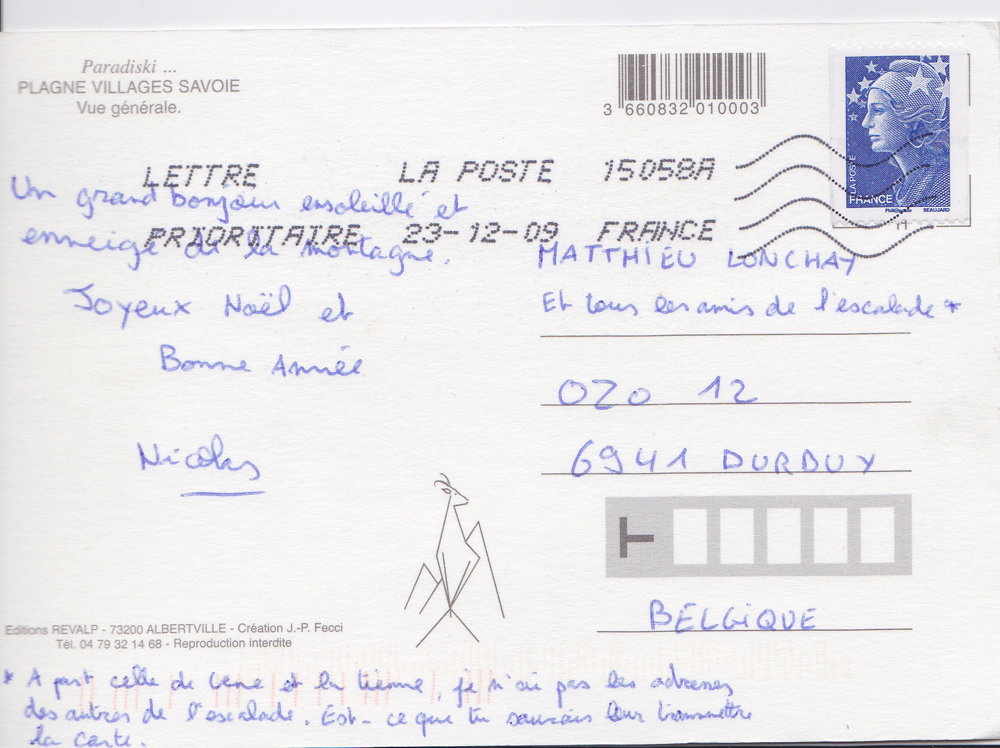 Paradiski ...
PLAGNE VILLAGES SAVOIE
Vue générale.
3 660832 010003
LA POSTE
FRANCE
BEAUJARD
LETTRE LA POSTE 15058A
PRIORITAIRE 23-12-09 FRANCE
Un grand bonjour ensoleillé et
enneigé de la montagne.
Joyeux Noël et
Bonne Année
Nicolas
MATTHIEU LONCHAY
Et tous les amis de l'escalade *
OZO 12
6941 DURBUY
BELGIQUE
Editions REVALP - 73200 ALBERTVILLE - Création J.-P. Fecci
Tél. 04 79 32 14 68 - Reproduction interdite
* A part celle de et la tienne, je n'ai pas les adresses
des autres de l'escalade. Est-ce que tu saurais leur transmettre
la carte.